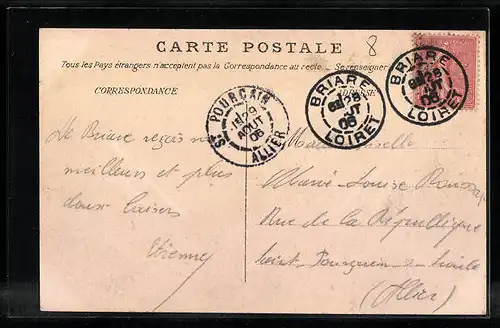 CARTE POSTALE
8
Tous les Pays étrangers n'acceptent pas la Correspondance au recto. Se renseigner
CORRESPONDANCE
ADRESSE
BRIARE
28
LOIRET
BRIARE
28
LOIRET
ST POURÇAIN
29
AOUT
06
ALLIER
De Briare reçois mes
meilleurs et plus
doux baisers
Etienne
Mademoiselle
Marie-Louise
Rue de la République
Saint Pourçain s. Sioule
(Allier)